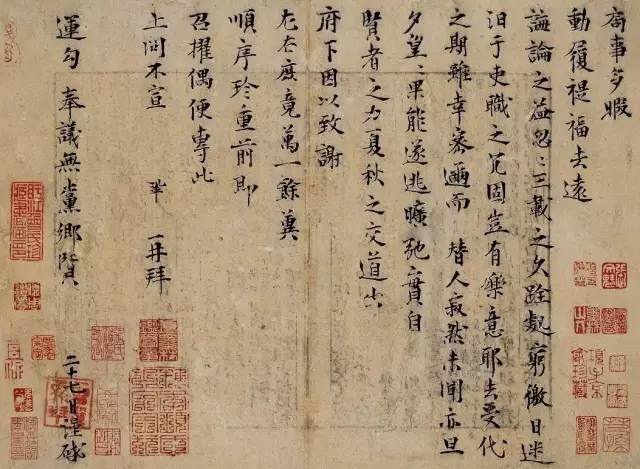 局事多暇
動履禔福去遠
誨論之益忽〻三載之久跧處窮徼日迷
汨于吏職之冗固豈有樂意耶去受代
之期雖幸密邇而替人寂然未聞亦旦
夕望〻果能遂逃曠弛實自
賢者之力夏秋之交道出
府下因以致謝
左右庶竟萬一餘冀
順序珍重前即
召擢偶便專此
上問不宣 鞏 再拜
運勾奉議無黨鄉賢 二十七日謹啓